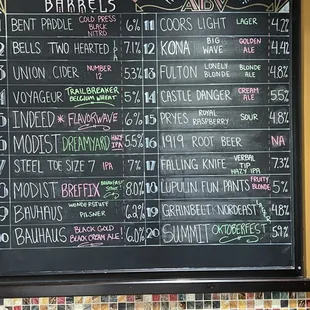 BARRELS
ABV
BENT PADDLE COLD PRESS BLACK NITRO 6%
BELLS TWO HEARTED 7.1%
UNION CIDER NUMBER 12 5.3%
VOYAGEUR TRAILBREAKER BELGIUM WHEAT 5%
INDEED * FLAVORWAVE 6%
MODIST DREAMYARD HAZY IPA 5.5%
STEEL TOE SIZE 7 IPA 7%
MODIST BREFFIX 8.0%
BAUHAUS WONDERSTUFF PILSNER 6.2%
BAUHAUS BLACK GOLD BLACK CREAM ALE! 6.0%
11 COORS LIGHT LAGER 4.2%
12 KONA BIG WAVE GOLDEN ALE 4.4%
13 FULTON LONELY BLONDE BLONDE ALE 4.8%
14 CASTLE DANGER CREAM ALE 5.5%
15 PRYES ROYAL RASPBERRY SOUR 4.8%
16 1919 ROOT BEER NA
17 FALLING KNIFE VERBAL TIP HAZY IPA 7.3%
18 LUPULIN FUN PANTS FRUITY BLONDE 5%
19 GRAINBELT NORDEAST LAGER 4.8%
20 SUMMIT OKTOBERFEST 5.9%